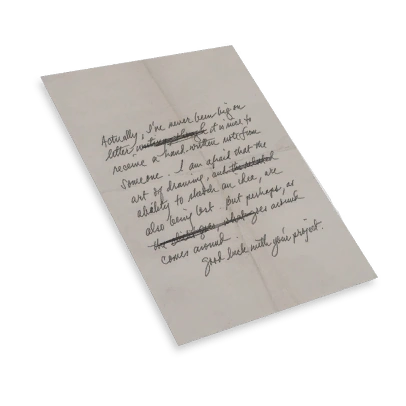 Actually, I've never been big on
letter writing, though it is nice to
receive a hand written note from
someone. I am afraid that the
art of drawing, and the related
ability to sketch an idea, are
also being lost. But perhaps, as
the goes, what goes around
comes around.
good luck with your project.